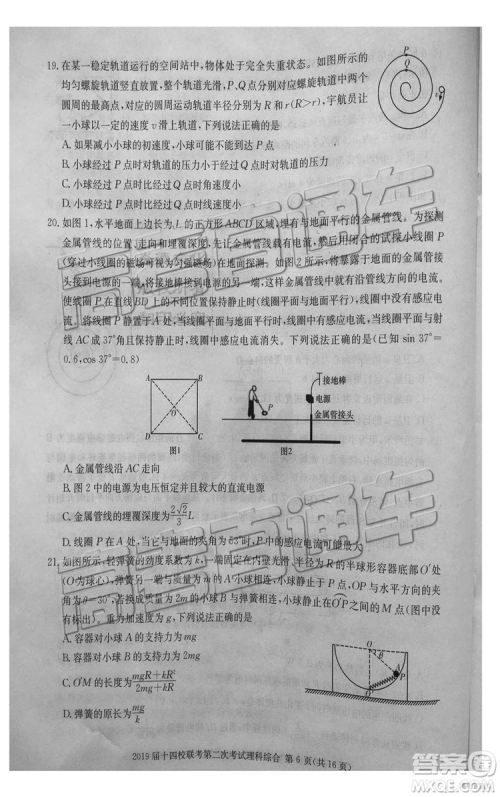 19. 在某一稳定轨道运行的空间站中，物体处于完全失重状态。如图所示的
均匀螺旋轨道竖直放置，整个轨道光滑，P、Q点分别对应螺旋轨道中两个
圆周的最高点，对应的圆周运动轨道半径分别为R和r(R>r)，宇航员让
一小球以一定的速度v滑上轨道，下列说法正确的是
A. 如果减小小球的初速度，小球可能不能到达P点
B. 小球经过P点时对轨道的压力小于经过Q点时对轨道的压力
C. 小球经过P点时比经过Q点时角速度小
D. 小球经过P点时比经过Q点时线速度小
P
Q
20. 如图1，水平地面上边长为L的正方形ABCD区域，埋有与地面平行的金属管线。为探测
金属管线的位置、走向和埋覆深度，先让金属管线载有电流，然后用闭合的试探小线圈P
(穿过小线圈的磁场可视为匀强磁场)在地面探测。如图2所示，将暴露于地面的金属管接
头接到电源的一端，将接地棒接到电源的另一端。这样金属管线中就有沿管线方向的电流。
使线圈P在直线BD上的不同位置保持静止时(线圈平面与地面平行)，线圈中没有感应电
流。将线圈P静置于A处，当线圈平面与地面平行时，线圈中有感应电流，当线圈平面与射
线AC成37°角且保持静止时，线圈中感应电流消失。下列说法正确的是(已知sin 37°=
0.6, cos 37°=0.8)
A
B
O
D
C
图1
P
接地棒
电源
金属管接头
图2
A. 金属管线沿AC走向
B. 图2中的电源为电压恒定并且较大的直流电源
C. 金属管线的埋覆深度为2√2/3 L
D. 线圈P在A处，当它与地面的夹角为53°时，P中的感应电流可能最大
21. 如图所示，轻弹簧的劲度系数为k，一端固定在内壁光滑、半径为R的半球形容器底部O′处
(O为球心)，弹簧另一端与质量为m的小球A相连，小球静止于P点，OP与水平方向的夹
角为θ=30°，若换成质量为2m的小球B与弹簧相连，小球将静止在O′P之间的M点(图中没
有标出)。下列说法正确的是
A. 容器对小球A的支持力为mg
B. 容器对小球B的支持力为mg
C. O′M的长度为(mgR+kR²)/(2mg+kR)
D. 弹簧的原长为mg/k
O
θ
A
P
O′
2019届十四校联考第二次考试理科综合 第6页(共16页)
高考直通车